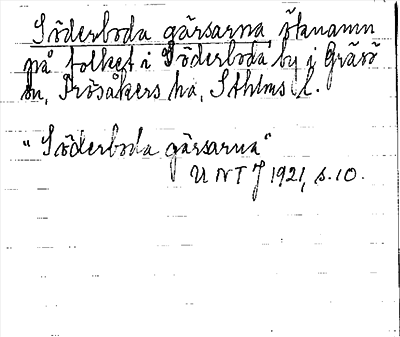 Söderboda gärsarna, öknamn
på folket i Söderboda by i Gräsö
sn, Frösåkers hd, Sthlms l.
"Söderboda gärsarna"
UNT J 1921, s. 10.